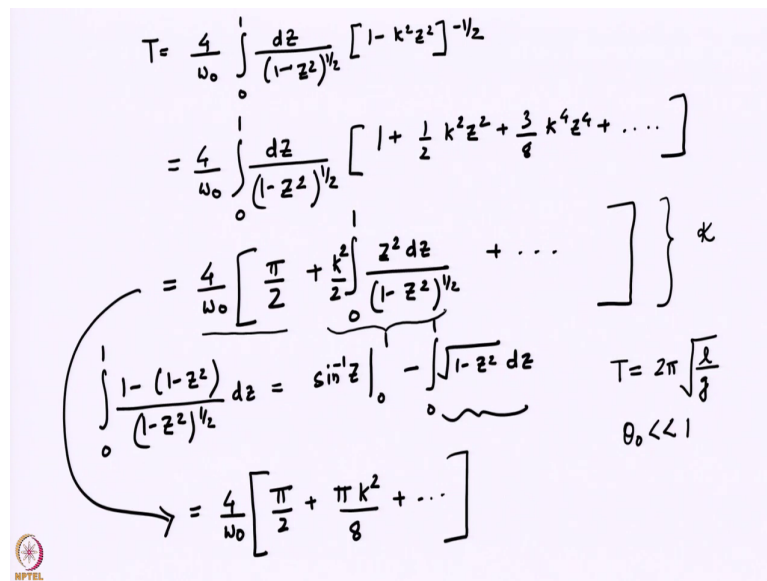 T = 4/ω₀ ∫₀¹ dz/(1-z²)^{1/2} [1-k²z²]^{-1/2}
= 4/ω₀ ∫₀¹ dz/(1-z²)^{1/2} [1 + 1/2 k²z² + 3/8 k⁴z⁴ + ....]
= 4/ω₀ [π/2 + k²/2 ∫₀¹ z² dz/(1-z²)^{1/2} + ... ] }
∫₀¹ 1-(1-z²)/(1-z²)^{1/2} dz = sin⁻¹z |₀¹ - ∫₀¹ √(1-z²) dz
T = 2π √(l/g)
θ₀ << 1
= 4/ω₀ [π/2 + πk²/8 + ...]
NPTEL